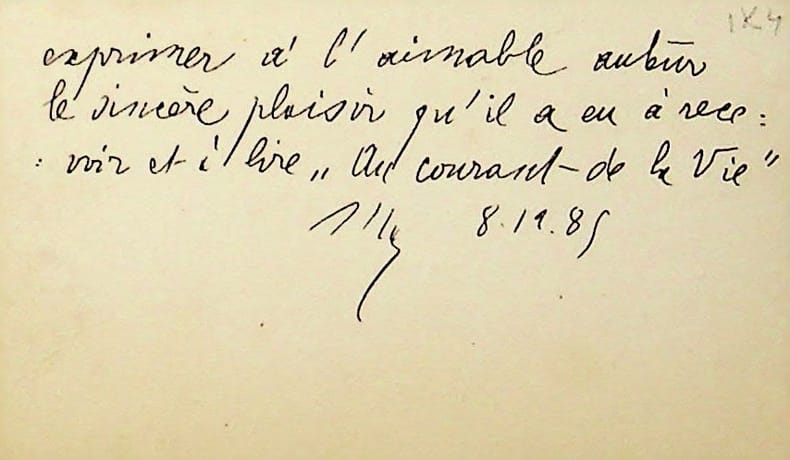 1K4
exprimer à l'aimable auteur
le sincère plaisir qu'il a eu à rece :
: voir et à lire „ Au courant de la Vie "
8.12.85